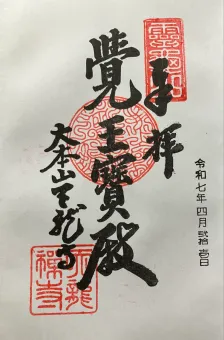 奉拝
令和七年四月弐拾壱日
覺王寶殿
大本山天龍寺
天龍禅寺